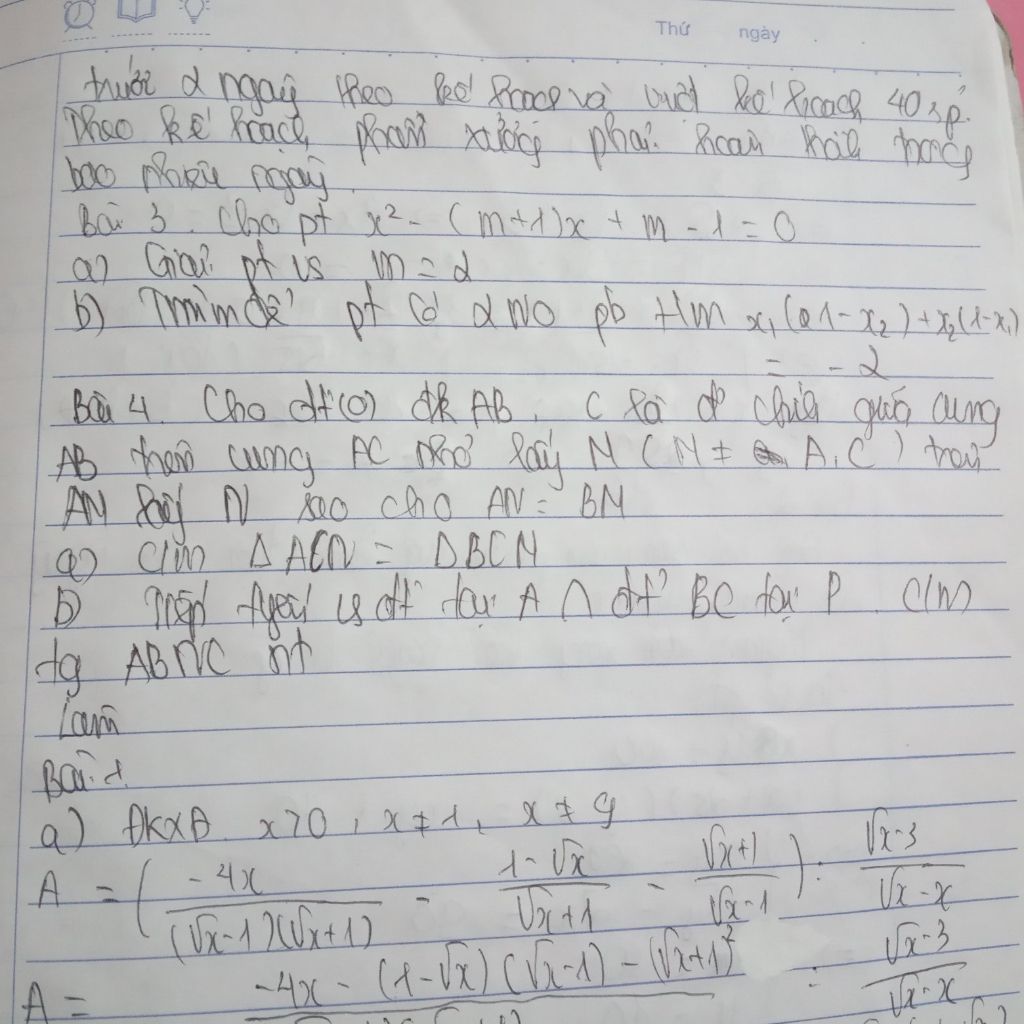 Thứ ngày
trước 2 ngày theo kế hoạch và vượt kế hoạch 40 sp.
Theo kế hoạch, phân xưởng phải hoàn thành trong
bao nhiêu ngày
Bài 3. Cho pt x² - (m+1)x + m - 1 = 0
a) Giải pt vs m = 2
b) Tìm m để pt có 2 No pb t/m x₁(1-x₂) + x₂(1-x₁)
= -2
Bài 4. Cho đt(O) đk AB. C là đ chính giữa cung
AB trên cung AC nhỏ lấy M (M ≠ A, C) trên
AM lấy N sao cho AN = BM
a) C/m Δ ACN = Δ BCM
b) tại A ∩ đt BC tại P. C/m
tg nt
Làm
Bài 1.
a) ĐKXĐ x > 0, x ≠ 1, x ≠ 9
A = ( -4x / (√x-1)(√x+1) - 1-√x / √x+1 - √x+1 / √x-1 ) : √x-3 / √x-x
A = -4x - (1-√x)(√x-1) - (√x+1)² : √x-3 / √x-x